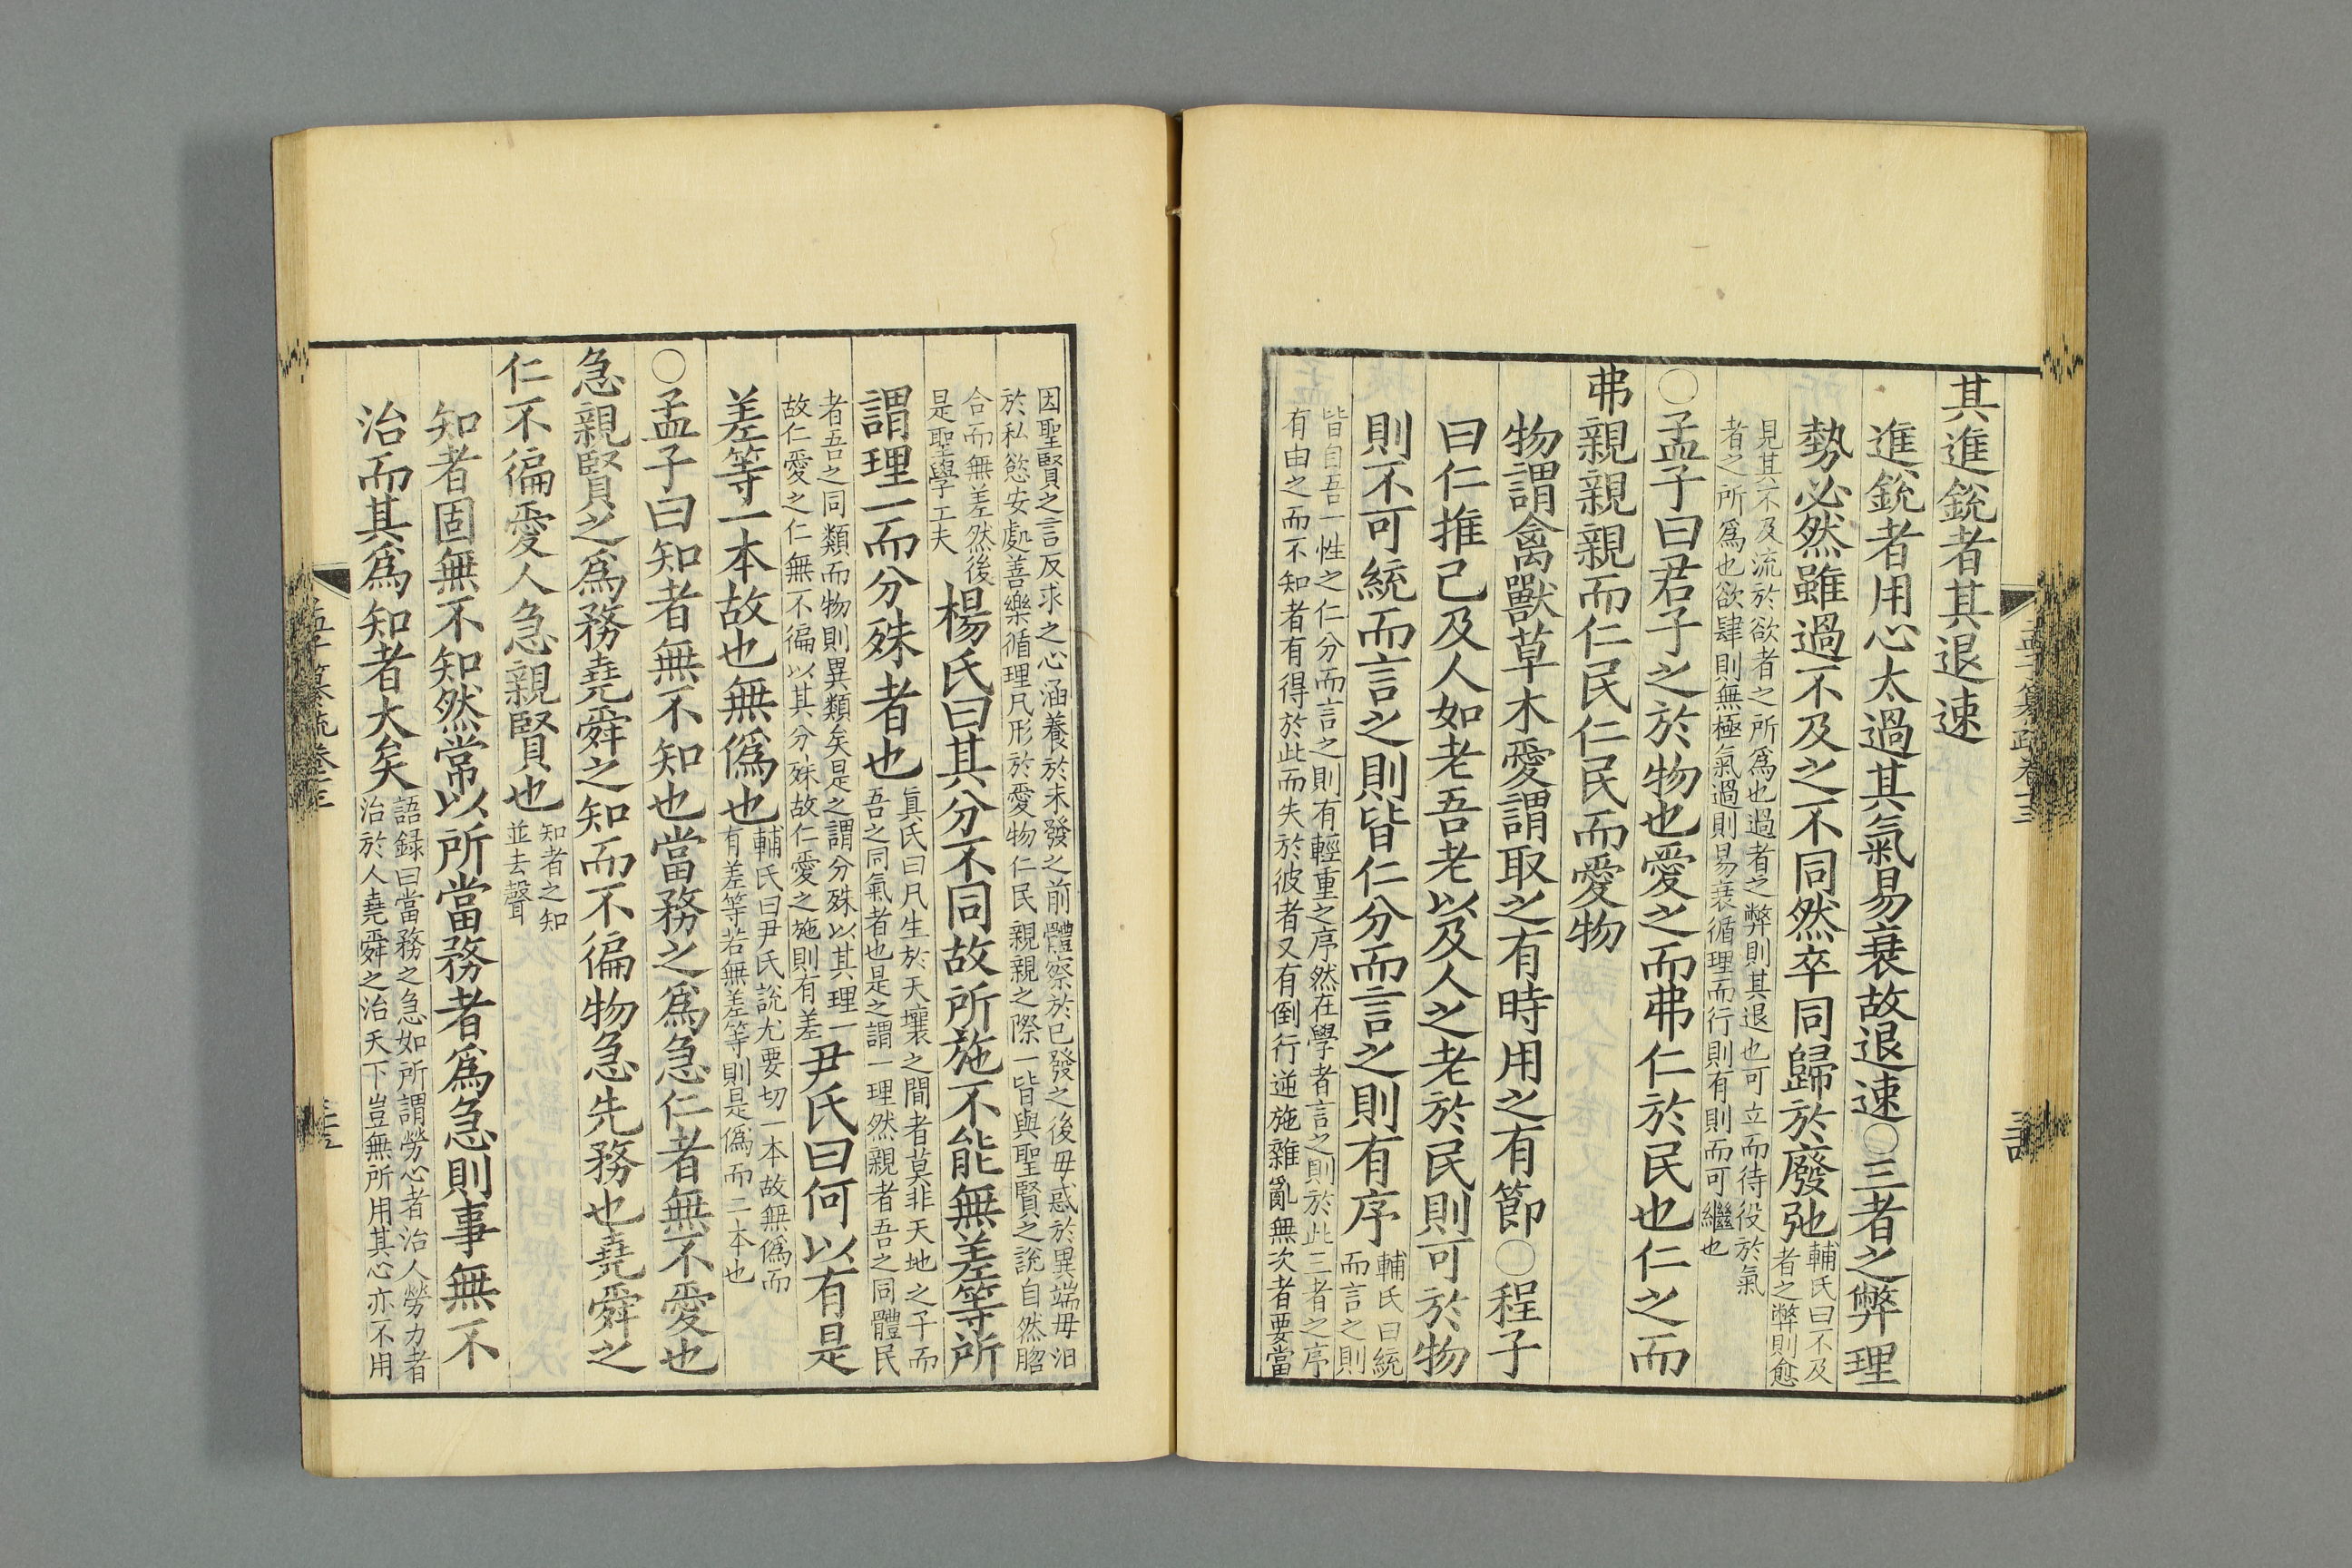 其進鋭者其退速
進鋭者用心太過其氣易衰故退速〇三者之弊理
勢必然雖過不及之不同然卒同歸於廢弛輔氏曰不及
者之弊則愈
見其不及流於欲者之所爲也過者之弊則其退也可立而待役於氣
者之所爲也欲肆則無極氣過則易衰循理而行則有則而可繼也
〇孟子曰君子之於物也愛之而弗仁於民也仁之而
弗親親親而仁民仁民而愛物
物謂禽獸草木愛謂取之有時用之有節〇程子
曰仁推己及人如老吾老以及人之老於民則可於物
則不可統而言之則皆仁分而言之則有序輔氏曰統
而言之則
皆自吾一性之仁分而言之則有輕重之序然在學者言之則於此三者之序
有由之而不知者有得於此而失於彼者又有倒行逆施雜亂無次者要當
孟子纂疏卷十三
因聖賢之言反求之心涵養於未發之前體察於已發之後毋惑於異端毋汩
於私慾安處善樂循理凡形於愛物仁民親親之際一皆與聖賢之說自然脗
合而無差然後
是聖學工夫楊氏曰其分不同故所施不能無差等所
謂理一而分殊者也眞氏曰凡生於天壤之間者莫非天地之子而
吾之同氣者也是之謂一理然親者吾之同體民
者吾之同類而物則異類矣是之謂分殊以其理一
故仁愛之仁無不徧以其分殊故仁愛之施則有差尹氏曰何以有是
差等一本故也無僞也輔氏曰尹氏說尤要切一本故無僞而
有差等若無差等則是僞而二本也
〇孟子曰知者無不知也當務之爲急仁者無不愛也
急親賢之爲務堯舜之知而不徧物急先務也堯舜之
仁不徧愛人急親賢也知者之知
並去聲
知者固無不知然常以所當務者爲急則事無不
治而其爲知者大矣語録曰當務之急如所謂勞心者治人勞力者
治於人堯舜之治天下豈無所用其心亦不用